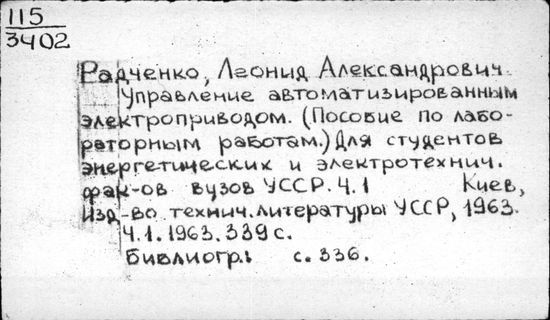 115
3402
Радченко, Леонид Александрович.
Управление автоматизированным
электроприводом. (Пособие по лабо-
раторным работам.) Для студентов
энергетических и электротехнич.
фак-ов вузов УССР. Ч.1 Киев,
изд-во технич. литературы УССР, 1963.
Ч.1. 1963. 339 с.
Библиогр.: с. 336.